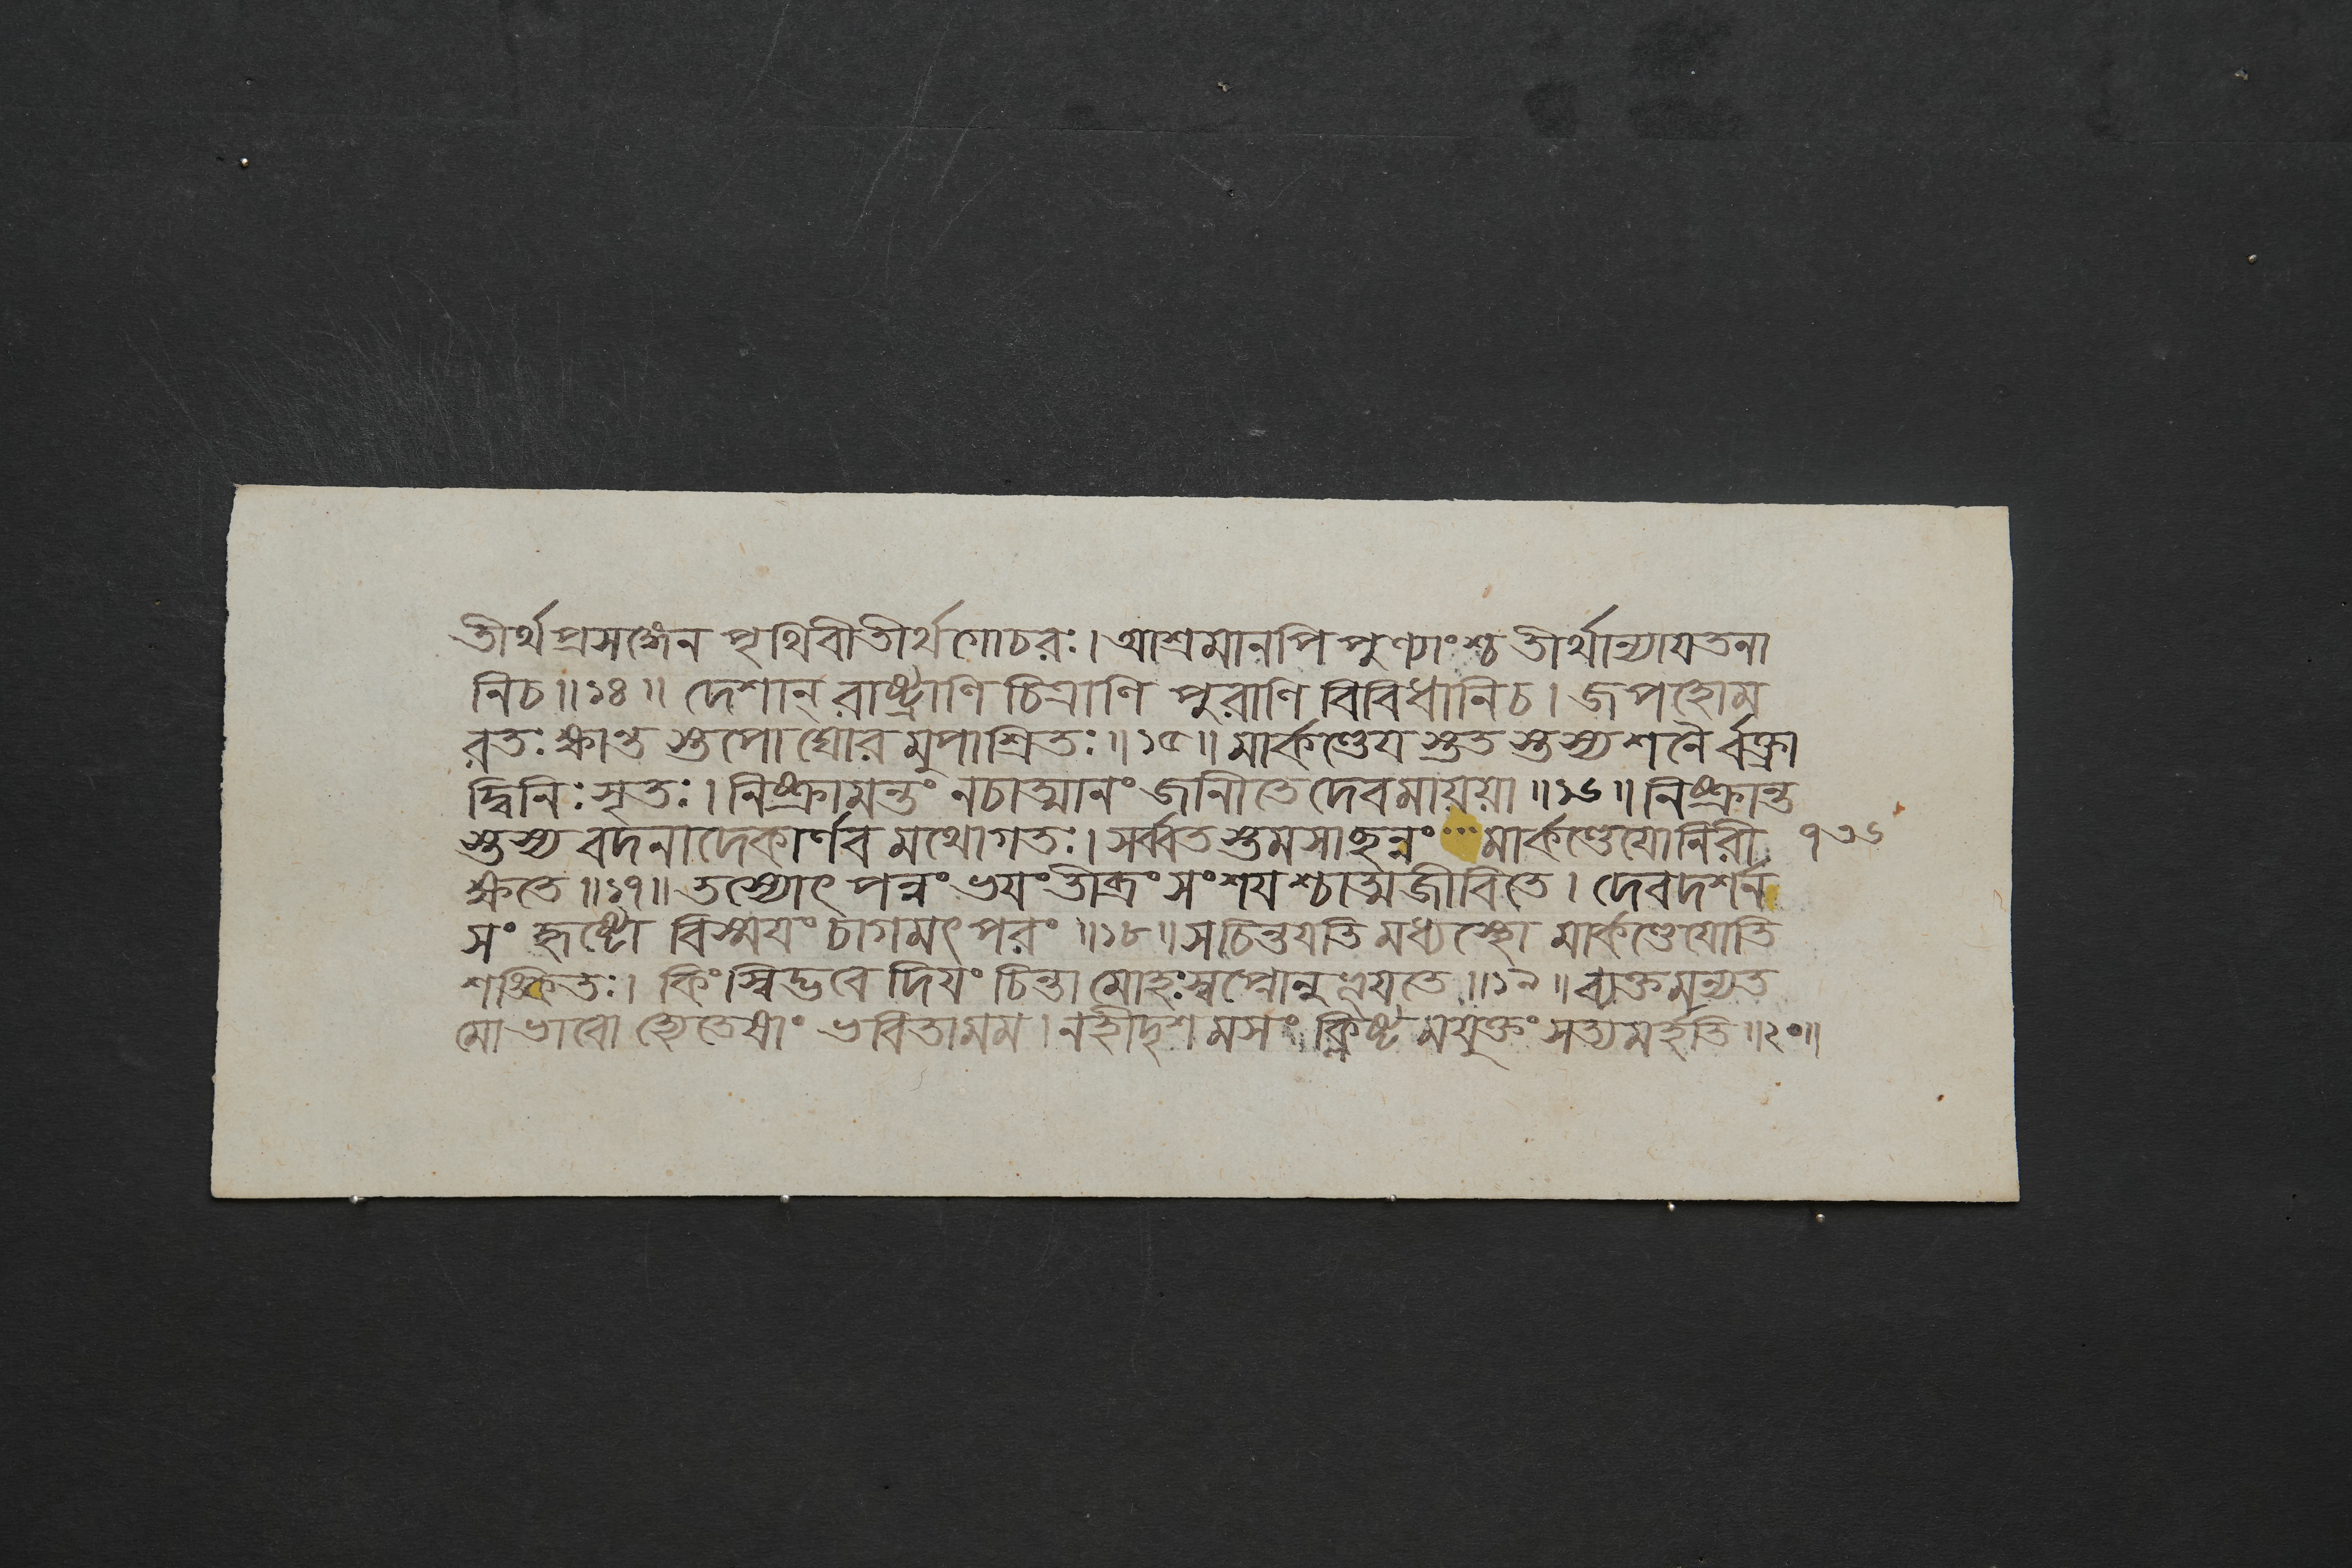 তীর্থপ্রসঙ্গেন পৃথিবীতীর্থগোচরঃ। আশ্রমানপি পুণ্যাংশ্চ তীর্থান্যাযতনা
নিচ॥১৪॥ দেশান্ রাষ্ট্রাণি চিত্রাণি পুরাণি বিবিধানিচ। জপহোম
রতঃ ক্ষান্ত স্তপো ঘোর মুপাশ্রিতঃ॥১৫॥ মার্কণ্ডেয স্তত স্তস্য শনৈ র্বক্ত্রা
দ্বিনিঃসৃতঃ। নিষ্ক্রামন্তং নচাত্মানং জানীতে দেবমায়য়া॥১৬॥ নিষ্ক্রান্ত
স্তস্য বদনাদেকার্ণব মথোগতঃ। সর্ব্বত স্তমসাছন্নং ... মার্কণ্ডেযোনিরী ৭৩৬
ক্ষতে॥১৭॥ তস্যোৎ পন্নং ভযং তীব্রং সংশয শ্চাত্মজীবিতে। দেবদর্শন
সং হৃষ্টো বিস্মযং চাগমৎ পরং॥১৮॥ সচিন্তযতি মধ্যস্থো মার্কণ্ডেযোতি
শঙ্কিতঃ। কিংস্বিদ্ভবে দিযং চিন্তা মোহঃস্বপ্নোনু ভূযতে॥১৯॥ ব্যক্তমন্যত
মো ভাবো হ্যেতেষাং ভবিতামম। নহীদৃশ মসং ক্লিষ্ট মযুক্তং সত্যমর্হতি॥২০॥